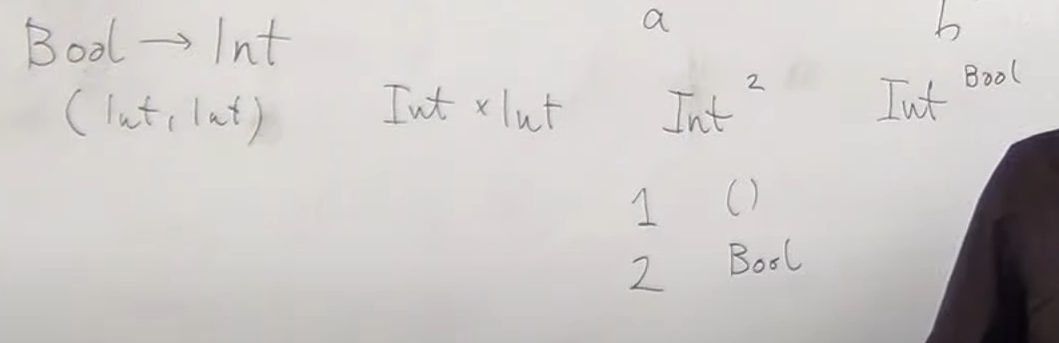 Bool → Int a b
(Int, Int) Int × Int Int² Int^Bool
1 ()
2 Bool